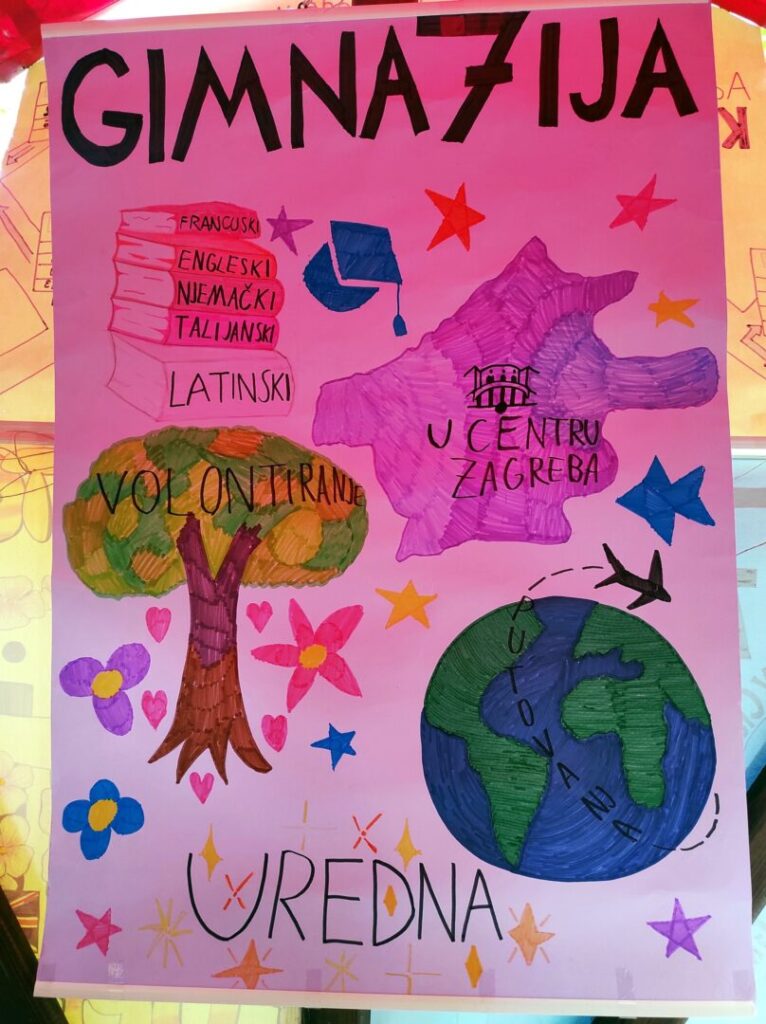 GIMNA7IJA
FRANCUSKI
ENGLESKI
NJEMAČKI
TALIJANSKI
LATINSKI
U CENTRU
ZAGREBA
VOLONTIRANJE
PUTOVANJA
UREDNA